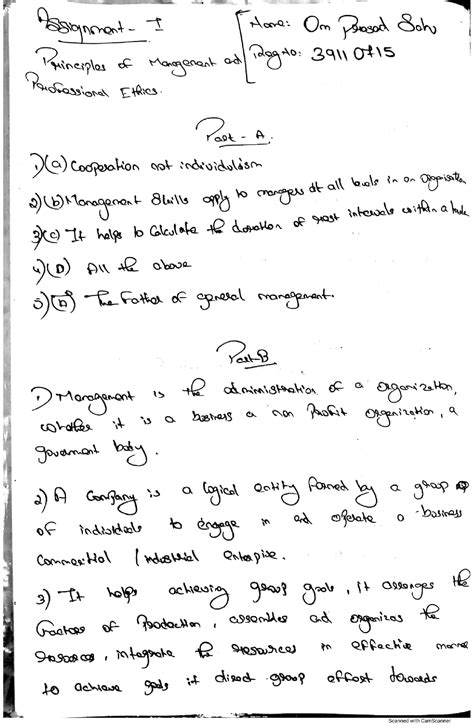 Assignment - I
Name: Om Prasad Sahu
Principles of Management and
Reg No: 39110715
Professional Ethics.
Part - A
1) (a) Cooperation not individulism
2) (b) Management Skills apply to managers at all levels in an organisation
3) (c) It helps to Calculate the duration of rest intervals within a
4) (D) All the above
5) The Father of general management.
Part-B
1) Management is the administration of a organization,
whether it is a business a non Profit organization, a
government body.
2) A Company is a logical entity formed by a group
of individuals to engage in and operate a business
Commercial / Industrial enterprise.
3) It helps achieving group goals, it arranges the
factors of Production, assembles and organizes the
resources, integrate the resources in effective manner
to achieve goals it direct group effort towards
Scanned with CamScanner